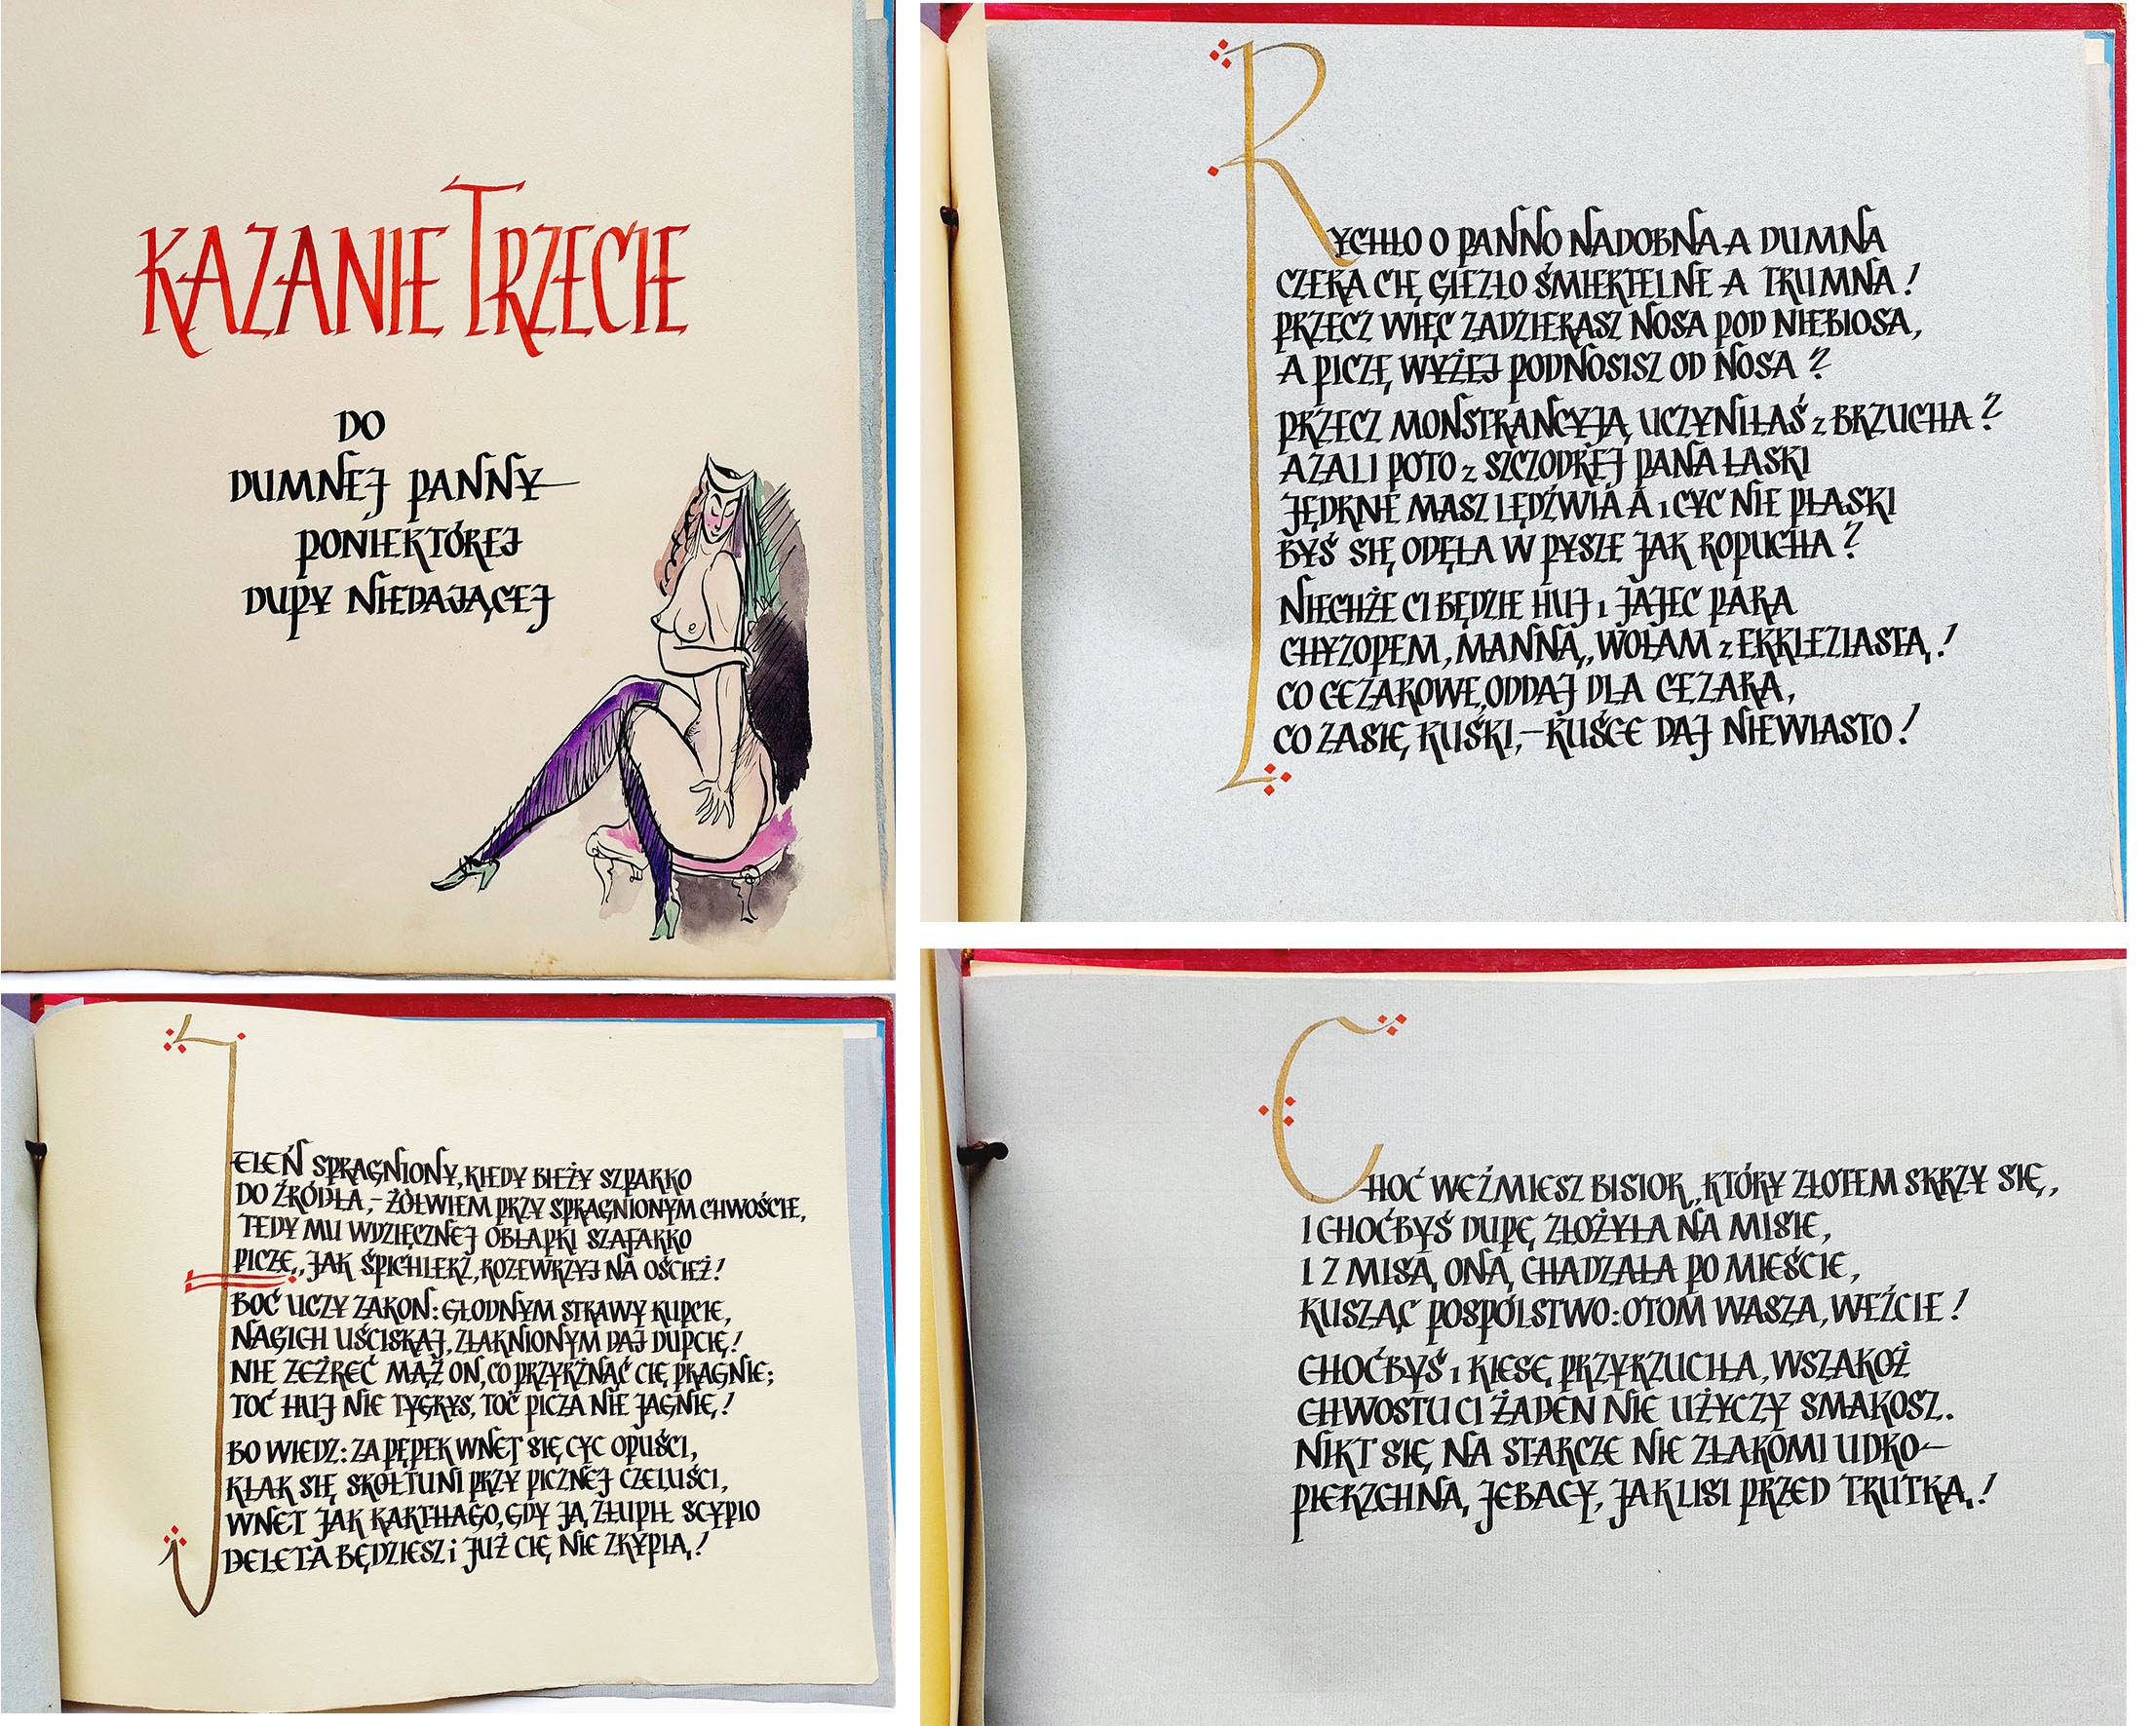 KAZANIE TRZECIE
DO
DUMNEJ PANNY
PONIEKTÓREJ
DUPY NIEDAJĄCEJ
RYCHŁO O PANNO NADOBNA A DUMNA
CZEKA CIĘ GIEZŁO ŚMIERTELNE A TRUMNA!
PRZECZ WIĘC ZADZIERASZ NOSA POD NIEBIOSA,
A PICZĘ WYŻEJ PODNOSISZ OD NOSA?
PRZECZ MONSTRANCYJĄ UCZYNIŁAŚ z BRZUCHA?
AZALI POTO z SZCZODREJ PANA ŁASKI
JĘDRNE MASZ LĘDŹWIA A i CYC NIE PŁASKI
BYŚ SIĘ ODĘŁA W PYSZE JAK ROPUCHA?
NIECHŻE CI BĘDZIE HUJ i JAJEC PARA
CHYZOPEM, MANNĄ, WOŁAM z EKKLEZIASTĄ!
CO CEZAROWE, ODDAJ DLA CEZARA,
CO ZASIĘ KUŚKI,—KUŚCE DAJ NIEWIASTO!
JELEŃ SPRAGNIONY, KIEDY BIEŻY SZPARKO
DO ŹRÓDŁA,- ŻÓŁWIEM PRZY SPRAGNIONYM CHWOŚCIE,
TEDY MU WDZIĘCZNEJ OBŁAPKI SZAFARKO
PICZĘ, JAK ŚPICHLERZ, ROZEWRZYJ NA OŚCIEŻ!
BOĆ UCZY ZAKON: GŁODNYM STRAWY KUPCIE,
NAGICH UŚCISKAJ, ZŁAKNIONYM DAJ DUPCIĘ!
NIE ZEŻREĆ MĄŻ ON, CO PRZYRŻNĄĆ CIĘ PRAGNIE;
TOĆ HUJ NIE TYGRYS, TOĆ PICZA NIE JAGNIĘ!
BO WIEDZ: ZA PĘPEK WNET SIĘ CYC OPUŚCI,
KŁAK SIĘ SKOŁTUNI PRZY PICZNEJ CZELUŚCI,
WNET JAK KARTHAGO, GDY JĄ ZŁUPIŁ SCYPIO
DELETA BĘDZIESZ i JUŻ CIĘ NIE ZRYPIĄ!
CHOĆ WEŹMIESZ BISIOR, KTÓRY ZŁOTEM SKRZY SIĘ,
I CHOĆBYŚ DUPĘ ZŁOŻYŁA NA MISIE,
I Z MISĄ ONĄ CHADZAŁA PO MIEŚCIE,
KUSZĄC POSPÓLSTWO: OTOM WASZA, WEŹCIE!
CHOĆBYŚ i KIESĘ PRZYRZUCIŁA, WSZAKOŻ
CHWOSTU CI ŻADEN NIE UŻYCZY SMAKOSZ.
NIKT SIĘ NA STARCZE NIE ZŁAKOMI UDKO—
PIERZCHNĄ JEBACY, JAK LISI PRZED TRUTKĄ!